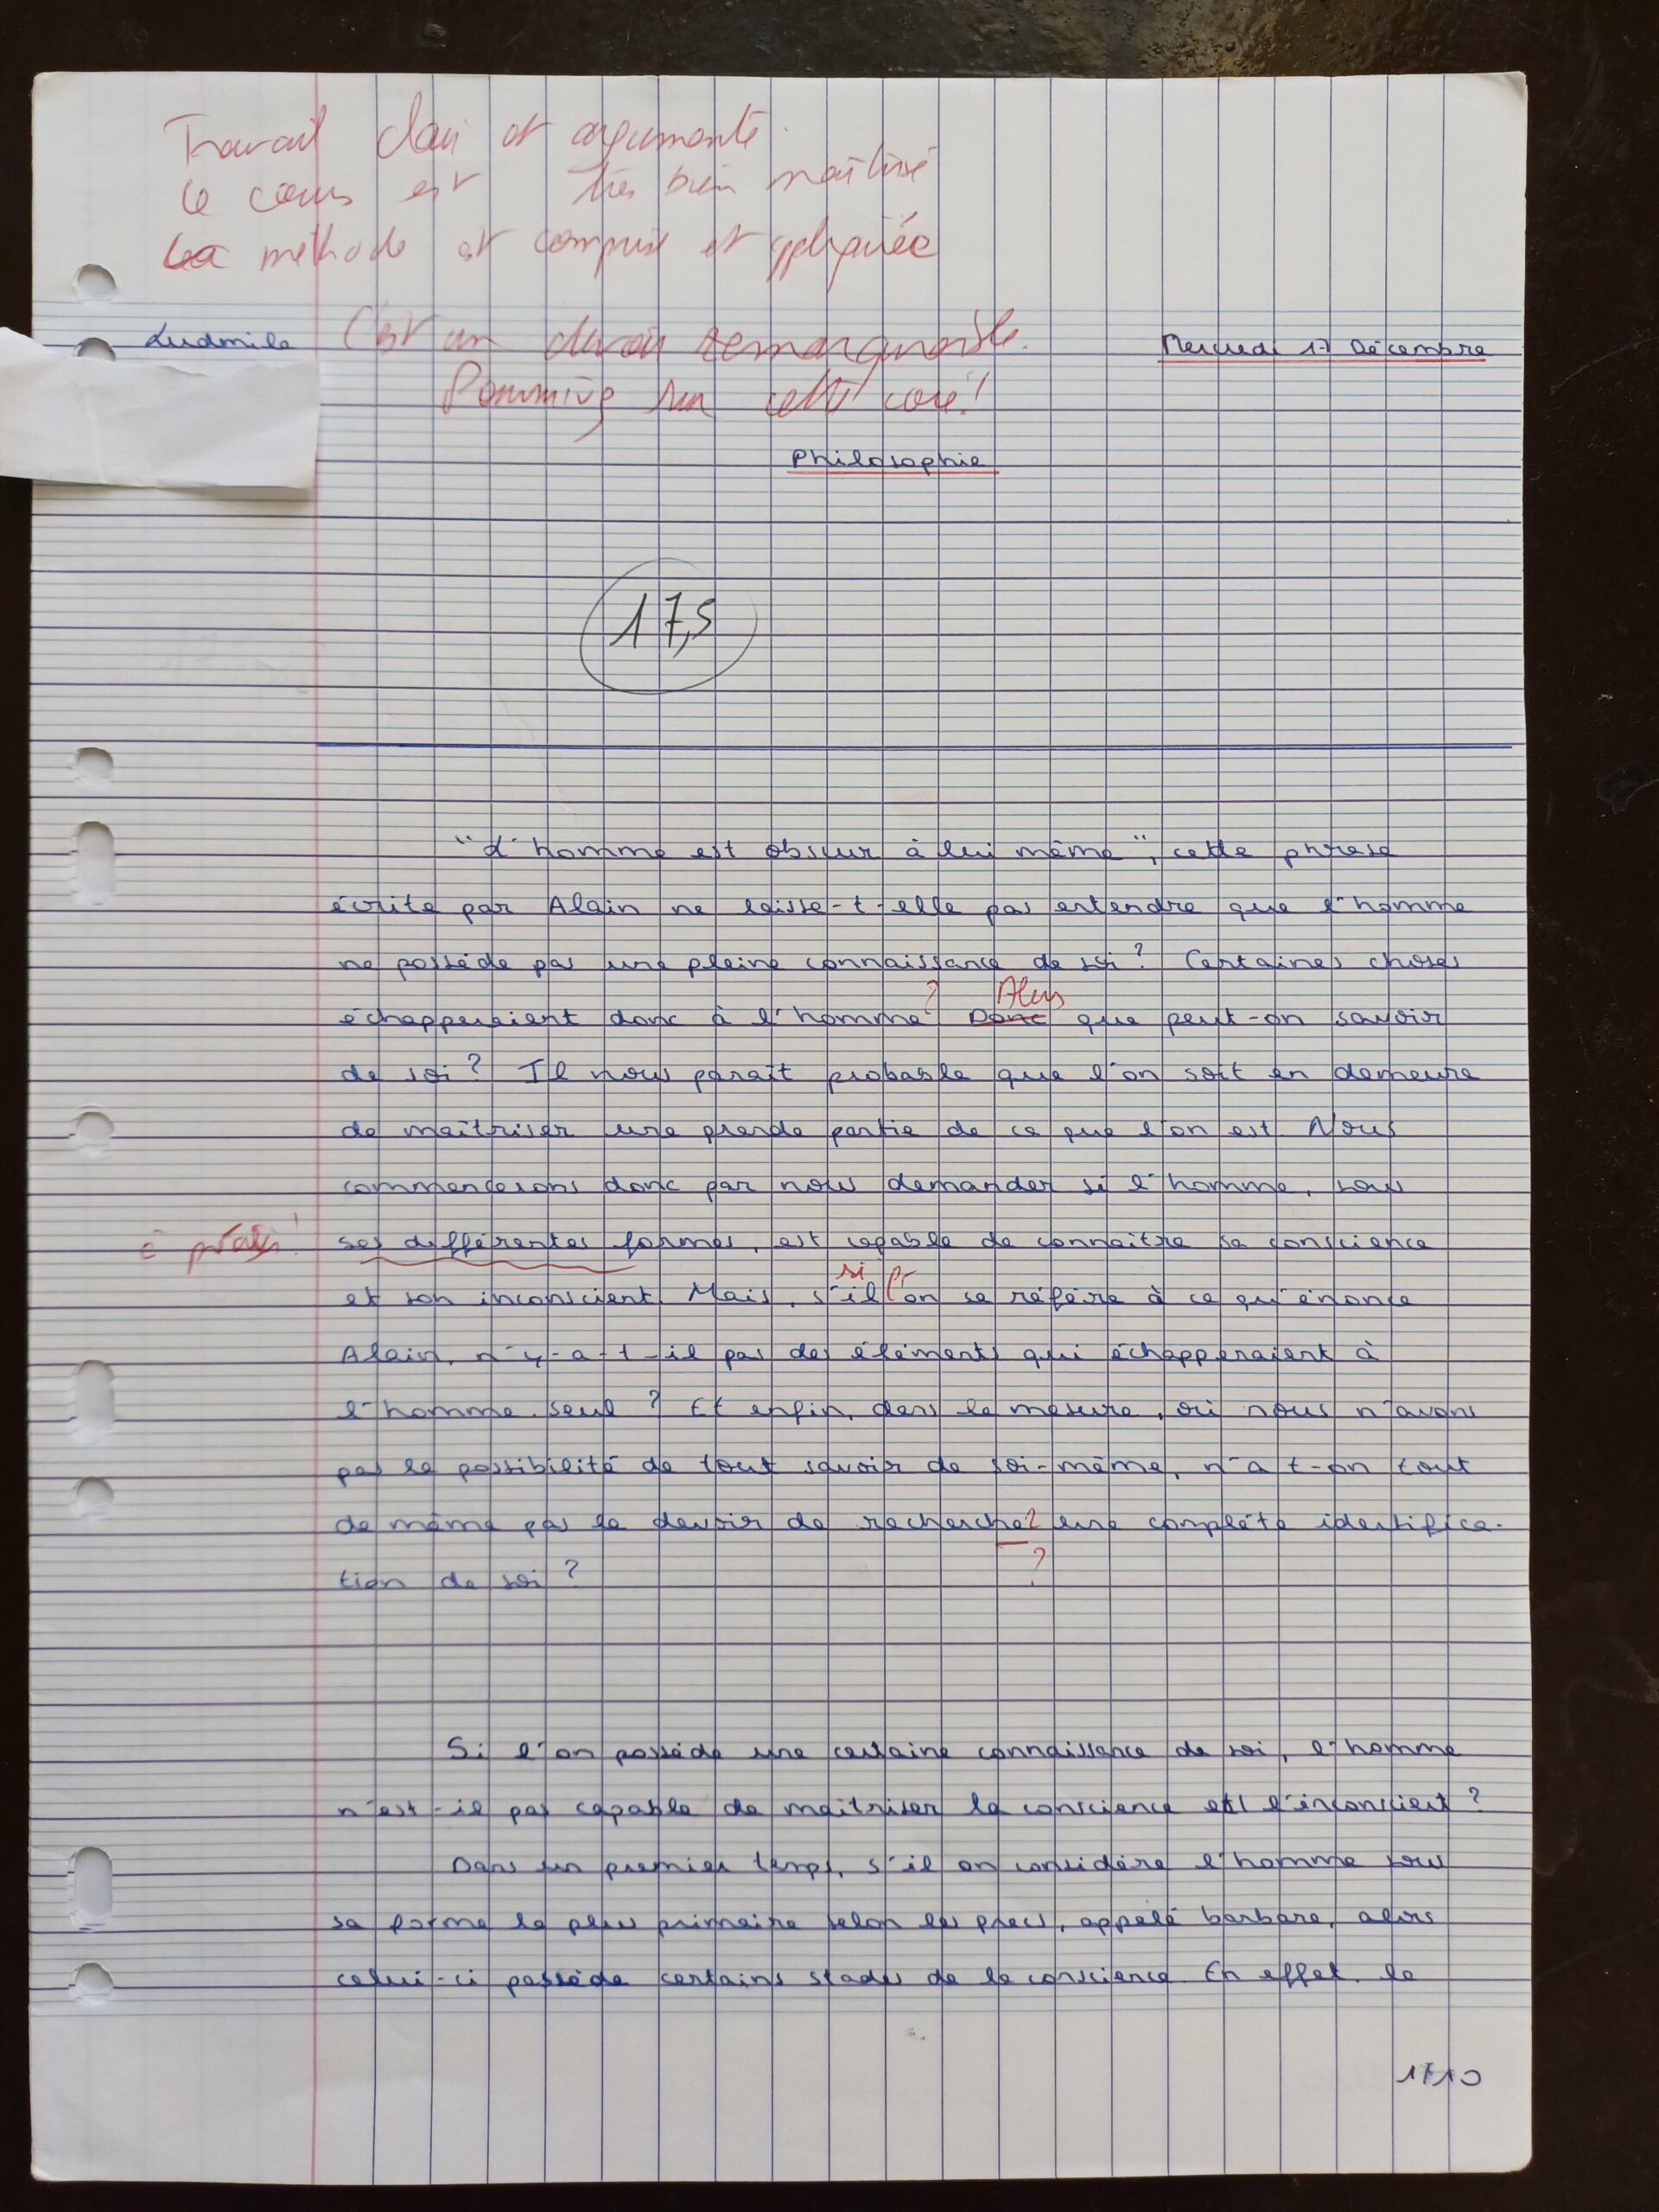 Travail clair et argumenté.
Le cours est très bien maîtrisé
La méthode est comprise et appliquée
Ludmila
C'est un devoir remarquable.
Mercredi 17 Décembre
Poursuivez sur cette voie!
Philosophie
17,5
"L'homme est obscur à lui même", cette phrase
écrite par Alain ne laisse-t-elle pas entendre que l'homme
ne possède pas une pleine connaissance de soi? Certaines choses
Alors
échapperaient donc à l'homme? Donc que peut-on savoir
de soi? Il nous paraît probable que l'on soit en demeure
de maîtriser une grande partie de ce que l'on est. Nous
commencerons donc par nous demander si l'homme, sous
à préciser!
ses différentes formes, est capable de connaître sa conscience
si l'
et son inconscient. Mais, s'il on se réfère à ce qu'énonce
Alain, n'y-a-t-il pas des éléments qui échapperaient à
l'homme seul? Et enfin, dans la mesure, où nous n'avons
pas la possibilité de tout savoir de soi-même, n'a t-on tout
de même pas le devoir de recherchez une complète identifica-
?
tion de soi?
Si l'on possède une certaine connaissance de soi, l'homme
n'est-il pas capable de maîtriser la conscience et l'inconscient?
Dans un premier temps, s'il on considère l'homme sous
sa forme la plus primaire selon les grecs, appelé barbare, alors
celui-ci possède certains stades de la conscience. En effet, le